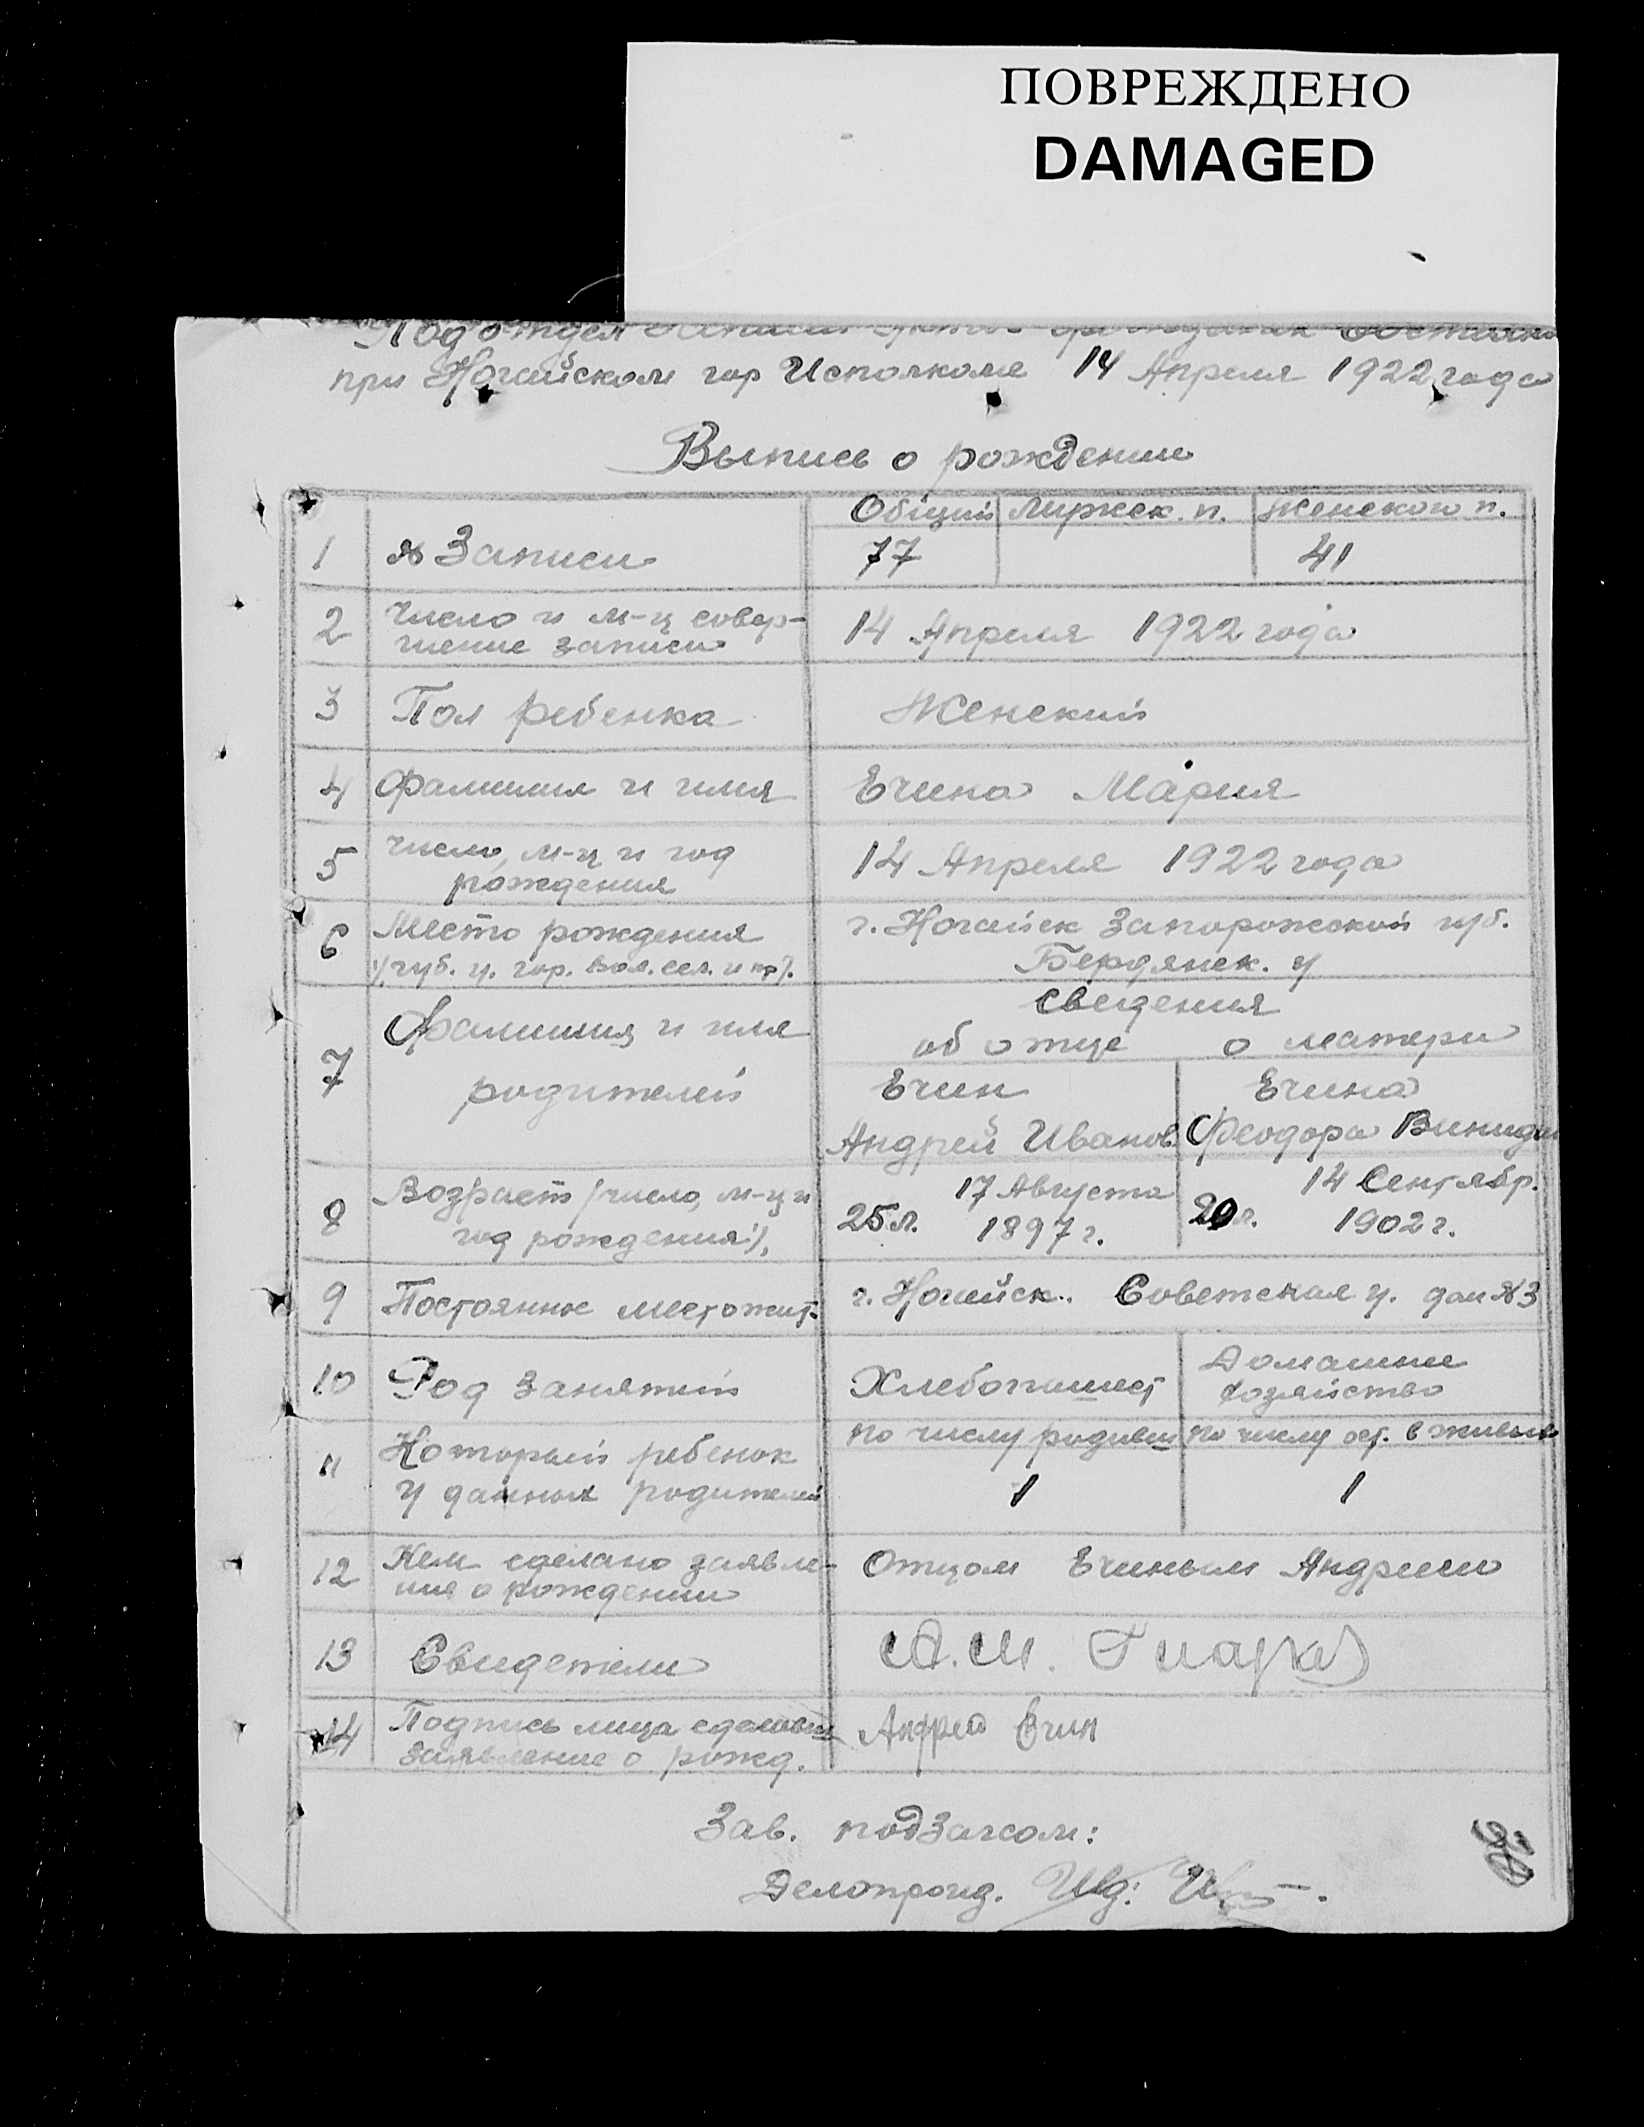 ПОВРЕЖДЕНО
DAMAGED
Подотдел Записи Актов гражданск состояни
при Ногайском гор Исполкоме 14 Апреля 1922 года
Выпись о рождении
Общий Мужск. п. Женского п.
1 № Записи 77 41
2 Число и м-ц совер-
шение записи 14 Апреля 1922 года
3 Пол ребенка Женский
4 Фамилия и имя Ечина Мария
5 Число, м-ц и год
рождения 14 Апреля 1922 года
6 Место рождения г. Ногайск Запорожской губ.
(губ. у. гор. вол. сел. и пр). Бердянск. у
Сведения
7 Фамилия и имя об отце о матери
родителей Ечин Ечина
Андрей Иванов Феодора
8 Возраст (число, м-ц и
год рождения), 25 л. 17 Августа
1897 г. 20 л. 14 Сентябр.
1902 г.
9 Постоянное местожит. г. Ногайск. Советская у. дом № 3
10 Род занятий Хлебопашест Домашнее
хозяйство
11 Который ребенок
у данных родителей по числу родивш по числу ост. в живых
1 1
12 Кем сделано заявле-
ние о рождении Отцом Ечиным Андреем
13 Свидетели
14 Подпись лица сделавш
заявление о рожд. Андрей Ечин
Зав. подзагсом:
Делопроизд.